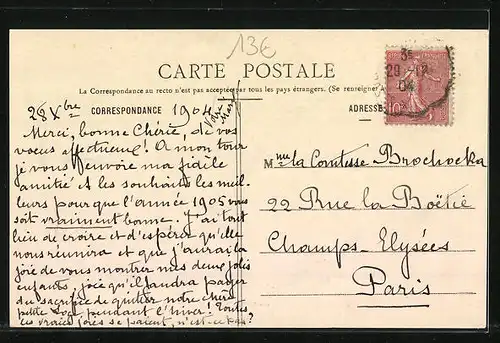 13€
CARTE POSTALE
La Correspondance au recto n'est pas acceptée par tous les pays étrangers. (Se renseigner à
28 Xbre CORRESPONDANCE 1904
ADRESSE
3e
29 -12
04
10
Merci, bonne Chérie, de vos
voeux affectueux! A mon tour
je vous envoie ma fidèle
amitié & les souhaits les meil-
leurs pour que l'année 1905 vous
soit vraiment bonne. J'ai tout
lieu de croire et d'espérer qu'elle
nous réunira et que j'aurai la
joie de vous montrer mes deux jolis
enfants; joie qu'il faudra payer
du sacrifice de quitter notre chère
petite pendant l'hiver! Toutes
les vraies joies se paient, n'est-ce pas?
Mme la Comtesse Brochocka
22 Rue la Boëtie
Champs-Elysées
Paris